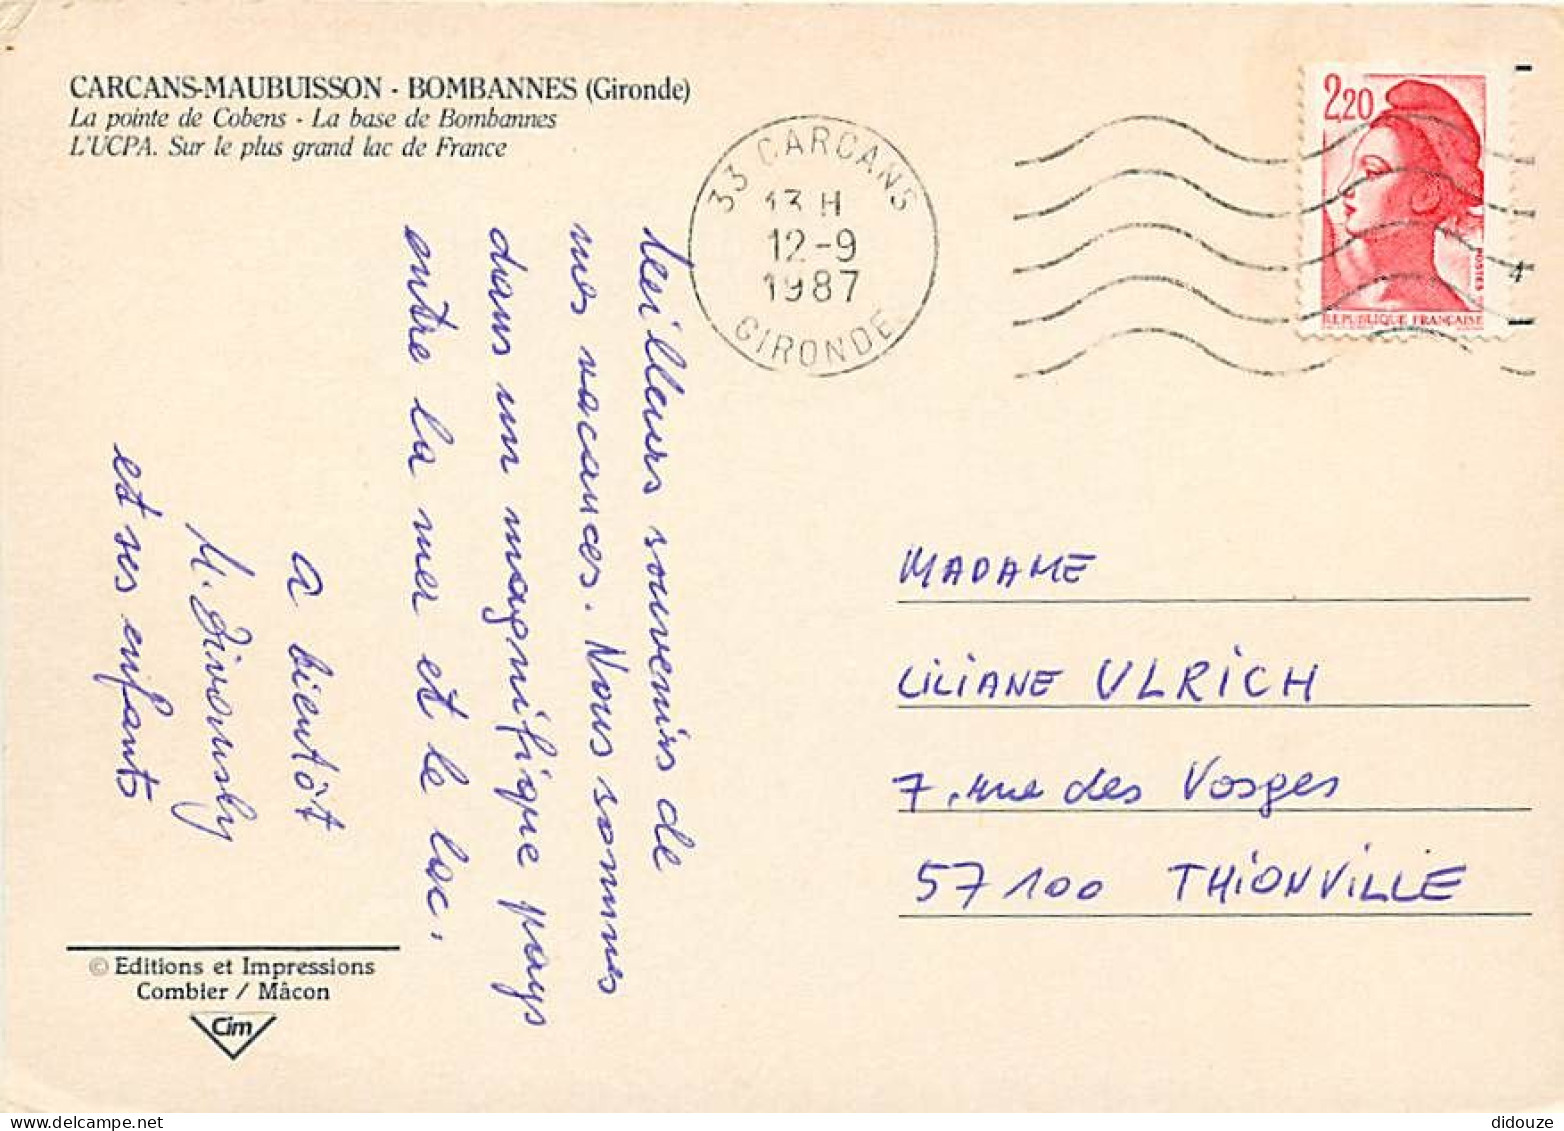 CARCANS-MAUBUISSON - BOMBANNES (Gironde)
La pointe de Cobens - La base de Bombannes
L'UCPA. Sur le plus grand lac de France
33 CARCANS
13 H
12-9
1987
GIRONDE
2,20
POSTES
REPUBLIQUE FRANÇAISE
4
Meilleurs souvenirs de
mes vacances. Nous sommes
dans un magnifique pays
entre la mer et le lac.
a bientôt
et ses enfants
MADAME
LILIANE ULRICH
7, rue des Vosges
57100 THIONVILLE
© Editions et Impressions
Combier / Mâcon
Cim
didouze